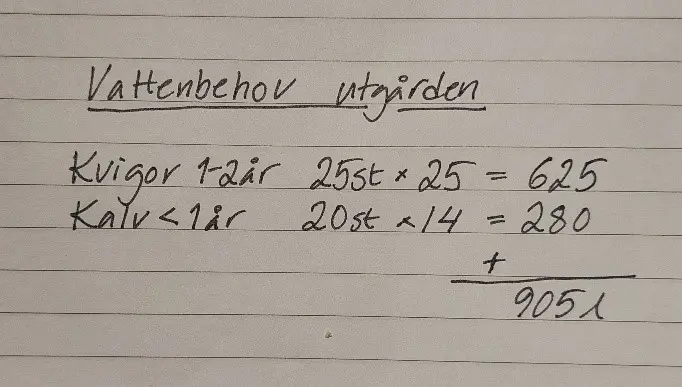 Vattenbehov utgården
Kvigor 1-2år 25st × 25 = 625
Kalv < 1år 20st × 14 = 280
+
905 l